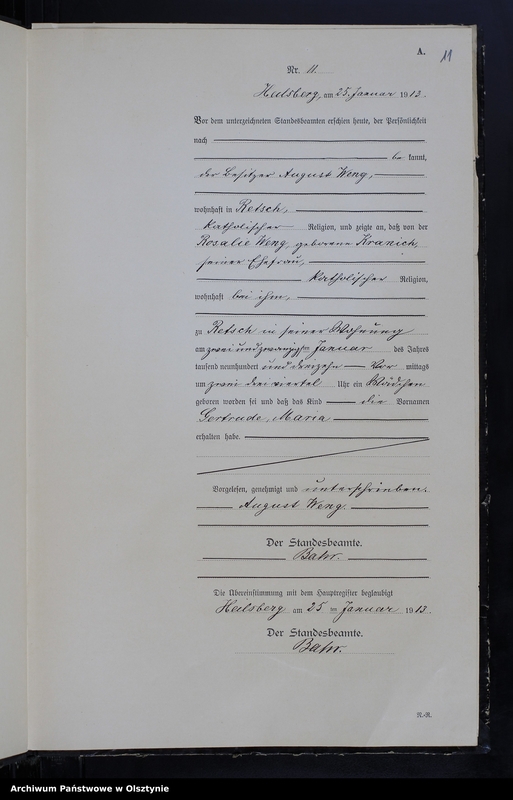 A. 11
Nr. 11.
Heilsberg, am 25. Januar 1913.
Vor dem unterzeichneten Standesbeamten erschien heute, der Persönlichkeit
nach
be kannt,
der Besitzer August Weng,
wohnhaft in Retsch,
katholischer Religion, und zeigte an, daß von der
Rosalie Weng, geborene Kranich,
seiner Ehefrau,
katholischer Religion,
wohnhaft bei ihm,
zu Retsch in seiner Wohnung
am zwei und zwanzigsten Januar des Jahres
tausend neunhundert und dreizehn Vor mittags
um zwei dreiviertel Uhr ein Mädchen
geboren worden sei und daß das Kind die Vornamen
Gertrude, Maria
erhalten habe.
Vorgelesen, genehmigt und unterschrieben.
August Weng.
Der Standesbeamte.
Bahr.
Die Übereinstimmung mit dem Hauptregister beglaubigt
Heilsberg am 25 ten Januar 1913.
Der Standesbeamte.
Bahr.
N.-R.
Archiwum Państwowe w Olsztynie